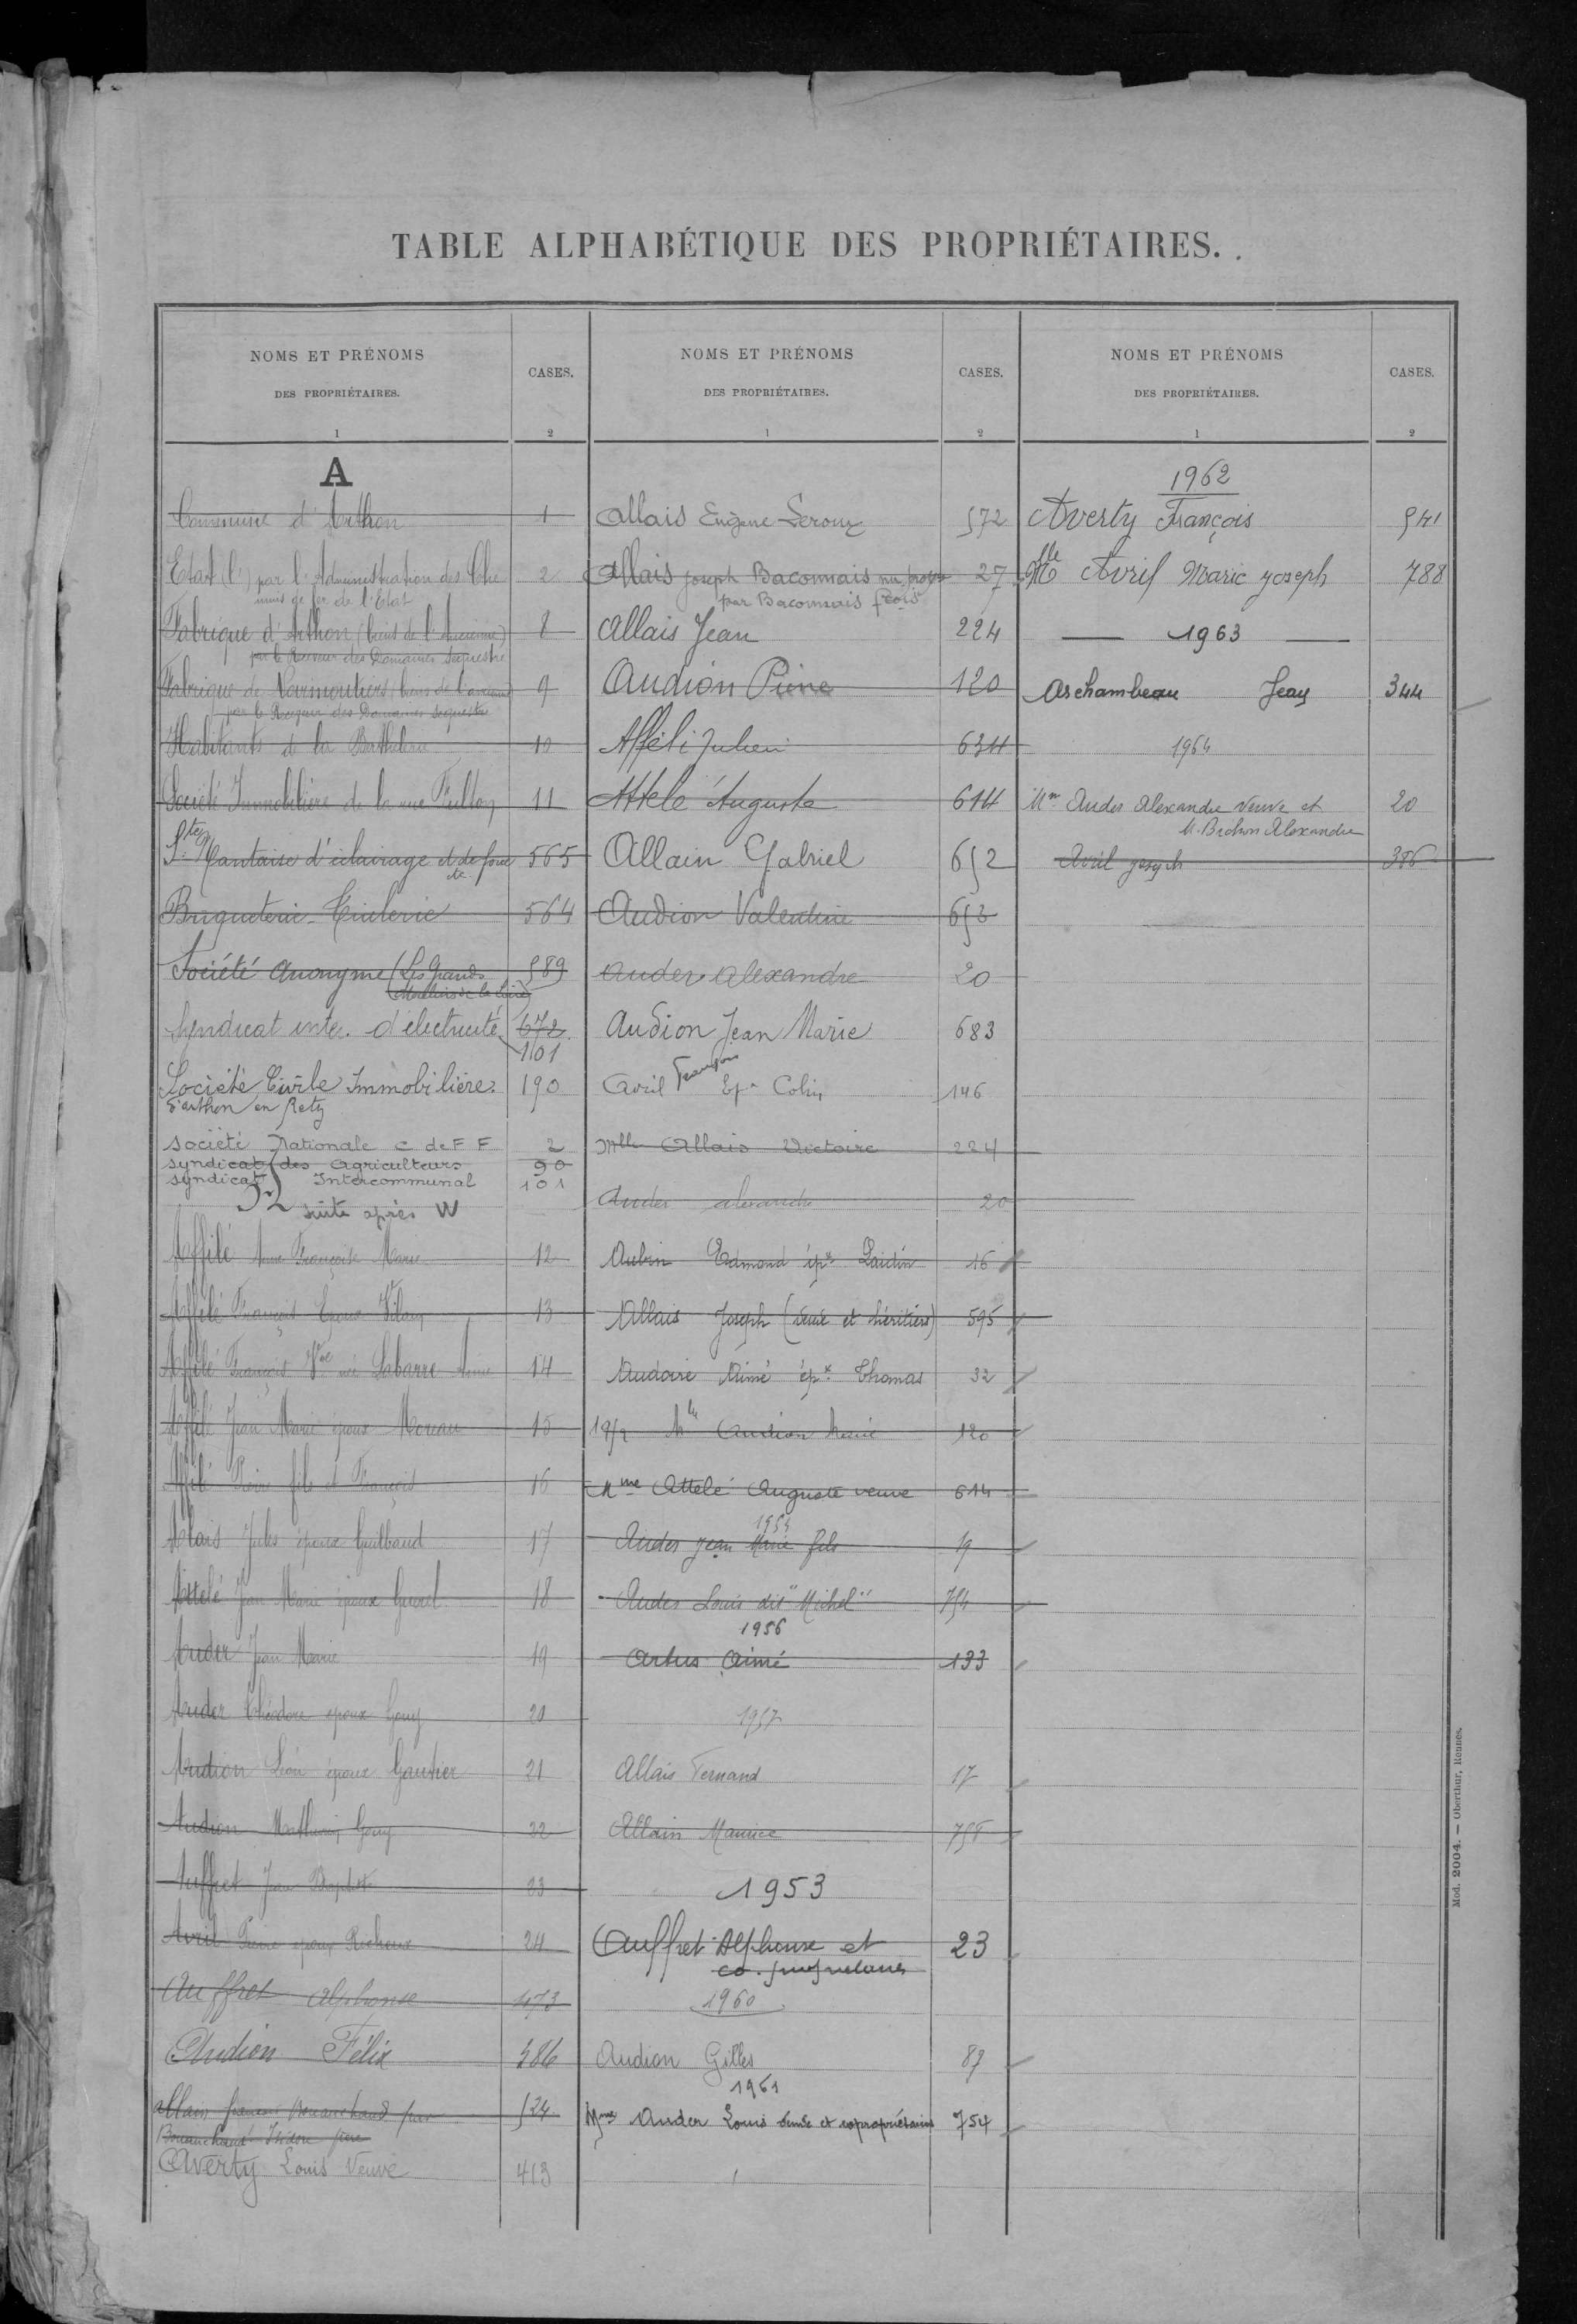 TABLE ALPHABÉTIQUE DES PROPRIÉTAIRES.
NOMS ET PRÉNOMS
DES PROPRIÉTAIRES.
CASES.
1
2
A
Commune d'Arthon 1
Etat (l') par l'Administration des Che 2
mins de fer de l'Etat
Fabrique d'Arthon (biens de l'Ancienne) 8
par le Receveur des Domaines Sequestre
Fabrique de Noirmoutiers biens de l'ancienne 9
par le Receveur des Domaines Sequestre
Habitants de la 10
Société Immobilière de la rue 11
Sté Nantaise d'éclairage et de force 565
Briqueterie Tuilerie 564
Société Anonyme (Les Grands 589
Moulins de la Loire)
Syndicat inter. d'électricité 672
101
Société Civile Immobilière 190
d'arthon en Retz
Société Nationale C de F F 2
Syndicat des Agriculteurs 90
Syndicat Intercommunal 101
suite après W
Affilé Anne Françoise Marie 12
Affilé François époux 13
Affilé François Vve née Labarre 14
Affilé Jean Marie époux Moreau 15
Affilé fils et François 16
Allais Jules époux Guilbaud 17
Attelé Jean Marie époux 18
Auder Jean Marie 19
Auder Théodore époux Gouy 20
Audion Léon époux Gautier 21
Audion Mathurin Gouy 22
Auffret Jean Baptiste 23
Avril Pierre époux 24
Auffret Alphonse 473
Audion Félix 386
allais 524
père
Averty Louis Veuve 413
NOMS ET PRÉNOMS
DES PROPRIÉTAIRES.
CASES.
1
2
Allais Eugène Leroux 572
Allais Joseph Baconnais nu prop 27
par Baconnais Frois
Allais Jean 224
Audion Pierre 120
Affilé Julien 634
Attelé Auguste 614
Allain Gabriel 652
Audion Valentine 653
Auder Alexandre 20
Audion Jean Marie 683
Avril François Ep. Colin 146
Mlle Allais Victoire 224
Auder alexandre 20
Aubin Edmond épx 16
Allais Joseph (veuve et héritiers) 595
Audoire Aimé épx Thomas 32
1952 Mlle Audion Marie 120
Mme Attelé Auguste veuve 614
1954
Auder Jean Marie fils 19
Auder Louis dit "Michel" 754
1956
Artus Aimé 133
1957
Allais Fernand 17
Allain Maurice 758
1953
Auffret Alphonse et 23
co. propriétaires
1960
Audion Gilles 87
1961
Mme Auder Louis veuve et copropriétaires 754
NOMS ET PRÉNOMS
DES PROPRIÉTAIRES.
CASES.
1
2
1962
Averty François 541
Mlle Avril Marie Joseph 788
1963
Archambeau Jean 344
1964
Mme Auder Alexandre Veuve et 20
M. Brohon Alexandre
Avril Joseph 386
Mod. 2004. — Oberthur, Rennes.